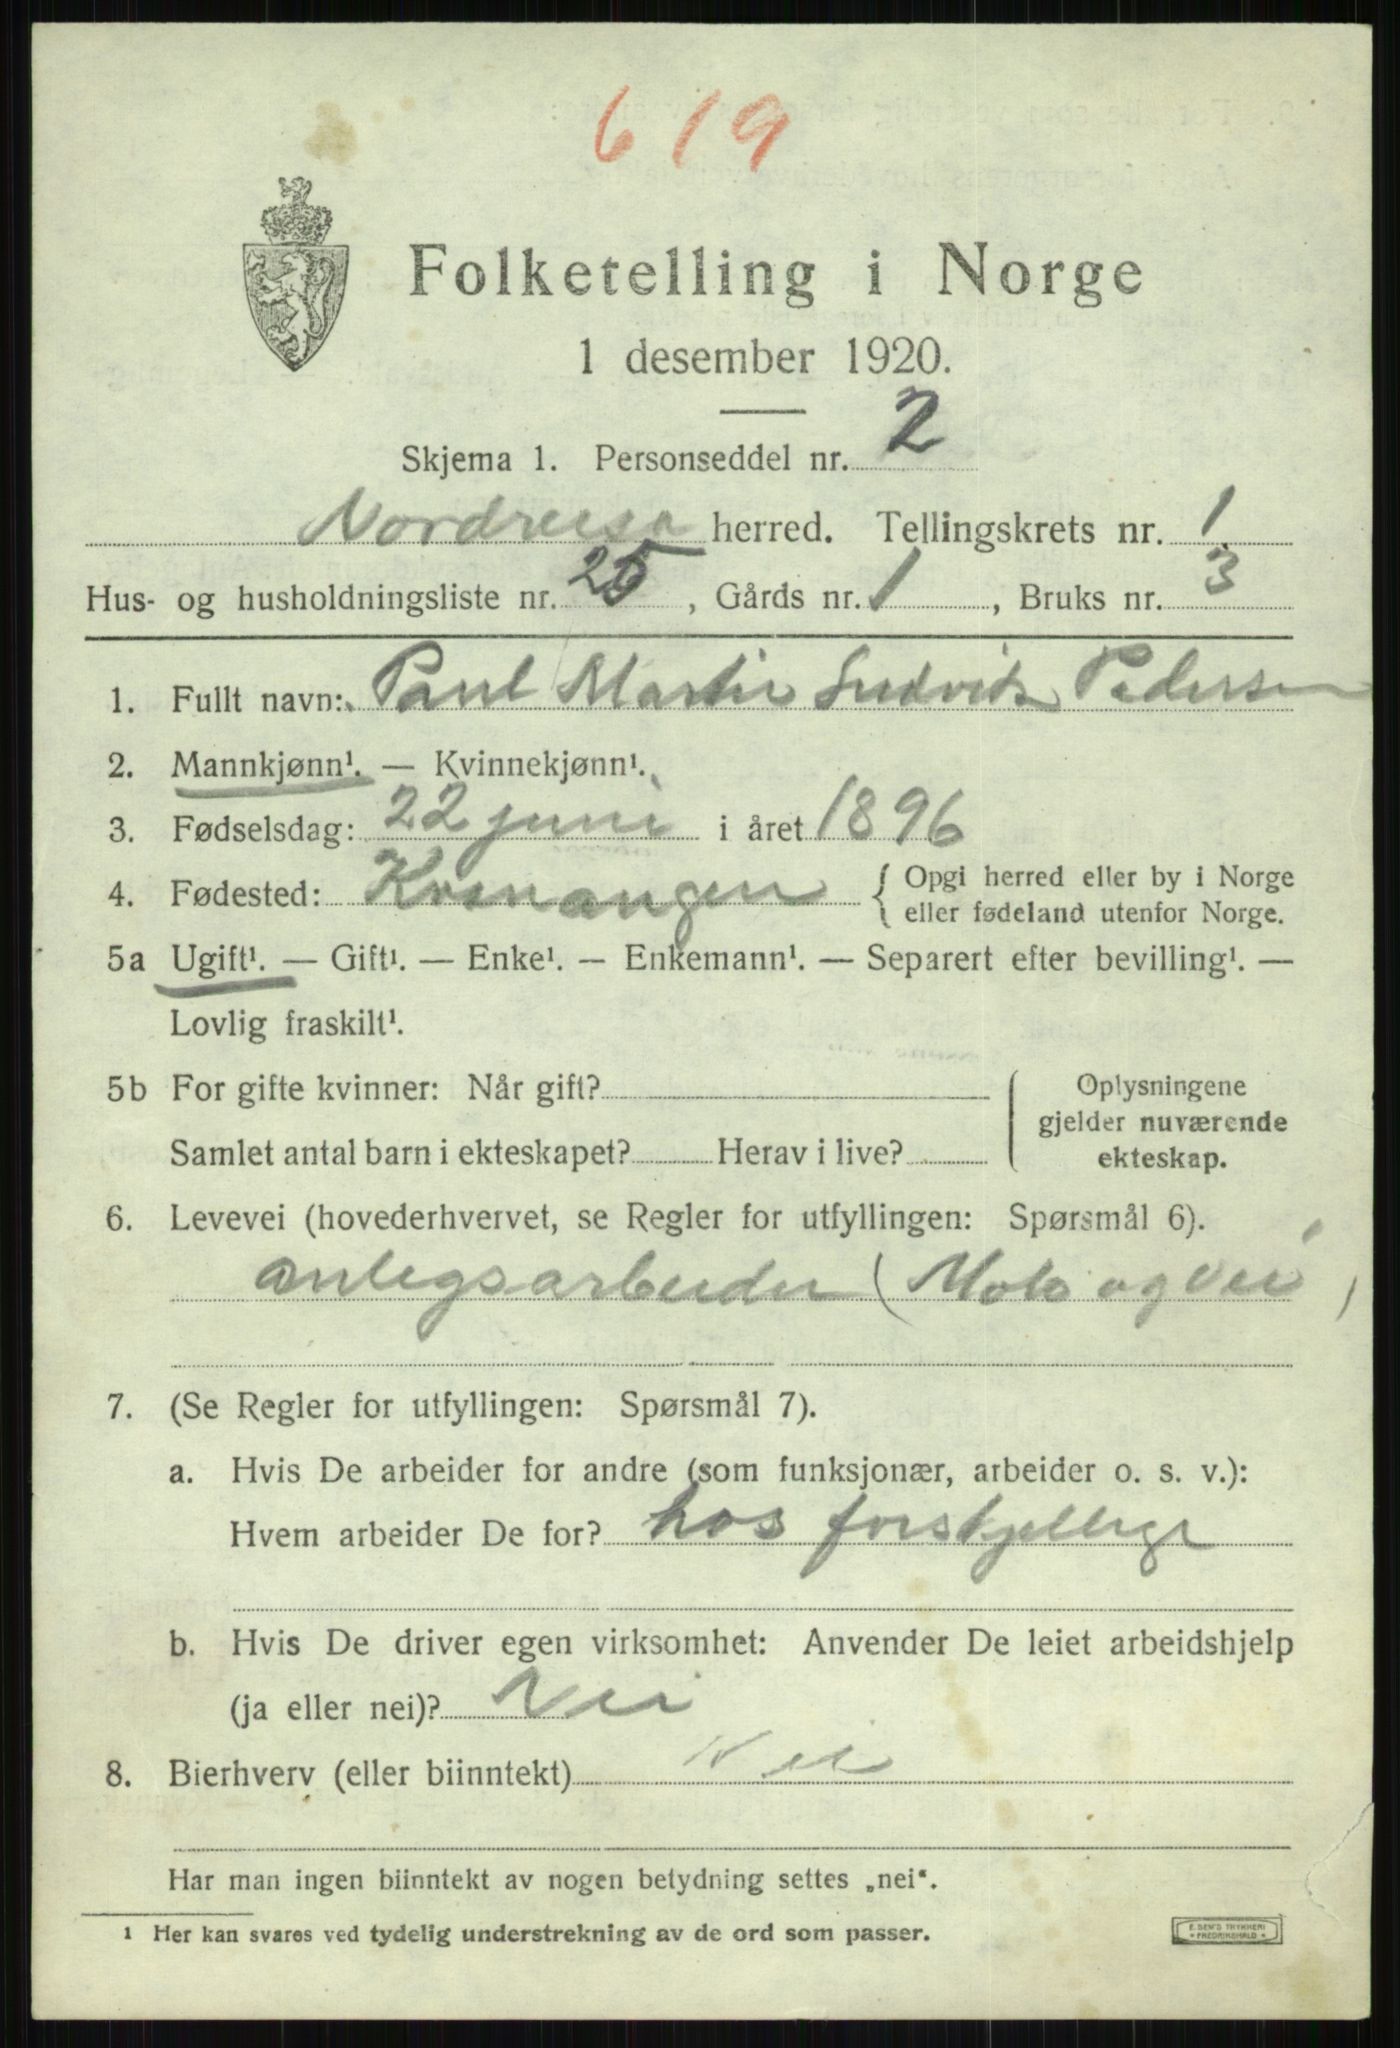 619
Folketelling i Norge
1 desember 1920.
Skjema 1. Personseddel nr. 2
Nordreisa herred. Tellingskrets nr. 1
Hus- og husholdningsliste nr. 25, Gårds nr. 1, Bruks nr. 3
1. Fullt navn: Paul Martin Ludvik Pedersen
2. Mannkjønn¹. — Kvinnekjønn¹.
3. Fødselsdag: 22 juni i året 1896
4. Fødested: Kvenangen { Opgi herred eller by i Norge
eller fødeland utenfor Norge.
5a Ugift¹. — Gift¹. — Enke¹. — Enkemann¹. — Separert efter bevilling¹. —
Lovlig fraskilt¹.
5b For gifte kvinner: Når gift? ( Oplysningene
gjelder nuværende
Samlet antal barn i ekteskapet? Herav i live?
ekteskap.
6. Levevei (hovederhvervet, se Regler for utfyllingen: Spørsmål 6).
anlegsarbeider (Molo og vei)
7. (Se Regler for utfyllingen: Spørsmål 7).
a. Hvis De arbeider for andre (som funksjonær, arbeider o. s. v.):
Hvem arbeider De for? hos forskjellige
b. Hvis De driver egen virksomhet: Anvender De leiet arbeidshjelp
(ja eller nei)? Nei
8. Bierhverv (eller biinntekt) Nei
Har man ingen biinntekt av nogen betydning settes „nei“.
¹ Her kan svares ved tydelig understrekning av de ord som passer.
E. SEM'S TRYKKERI
FREDRIKSHALD